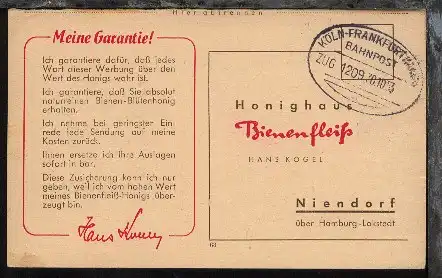 Hier abtrennen
Meine Garantie!
Ich garantiere dafür, daß jedes
Wort dieser Werbung über den
Wert des Honigs wahr ist.
Ich garantiere, daß Sie absolut
naturreinen Bienen-Blütenhonig
erhalten.
Ich nehme bei geringsten Ein-
rede jede Sendung auf meine
Kosten zurück.
Ihnen ersetze ich Ihre Auslagen
sofort in bar.
Diese Zusicherung kann ich nur
geben, weil ich vom hohen Wert
meines Bienenfleiß-Honigs über-
zeugt bin.
KÖLN-FRANKFURT
BAHNPOST
ZUG 1209
Honighaus
Bienenfleiß
HANS KOGEL
Niendorf
über Hamburg-Lokstedt